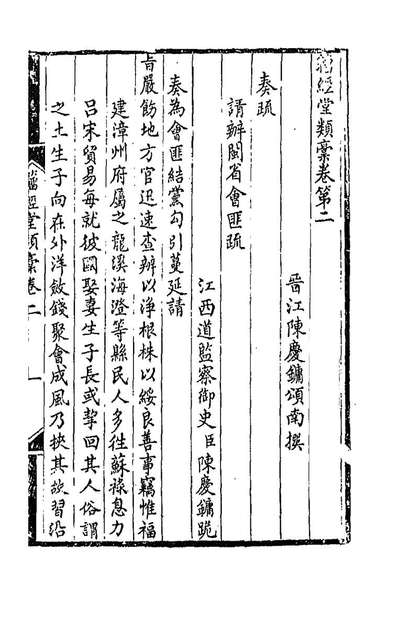 籀經堂類稾卷第二
晉江陳慶鏞頌南撰
奏疏
請辦閩省會匪疏
江西道監察御史臣陳慶鏞跪
奏為會匪結黨勾引蔓延請
旨嚴飭地方官迅速查辦以淨根株以綏良善事竊惟福
建漳州府屬之龍溪海澄等縣民人多徃蘇祿息力
呂宋貿易每就彼國娶妻生子長或挈回其人俗謂
之土生子向在外洋斂錢聚會成風乃挾其故習沿
籀經堂類稾卷二
一